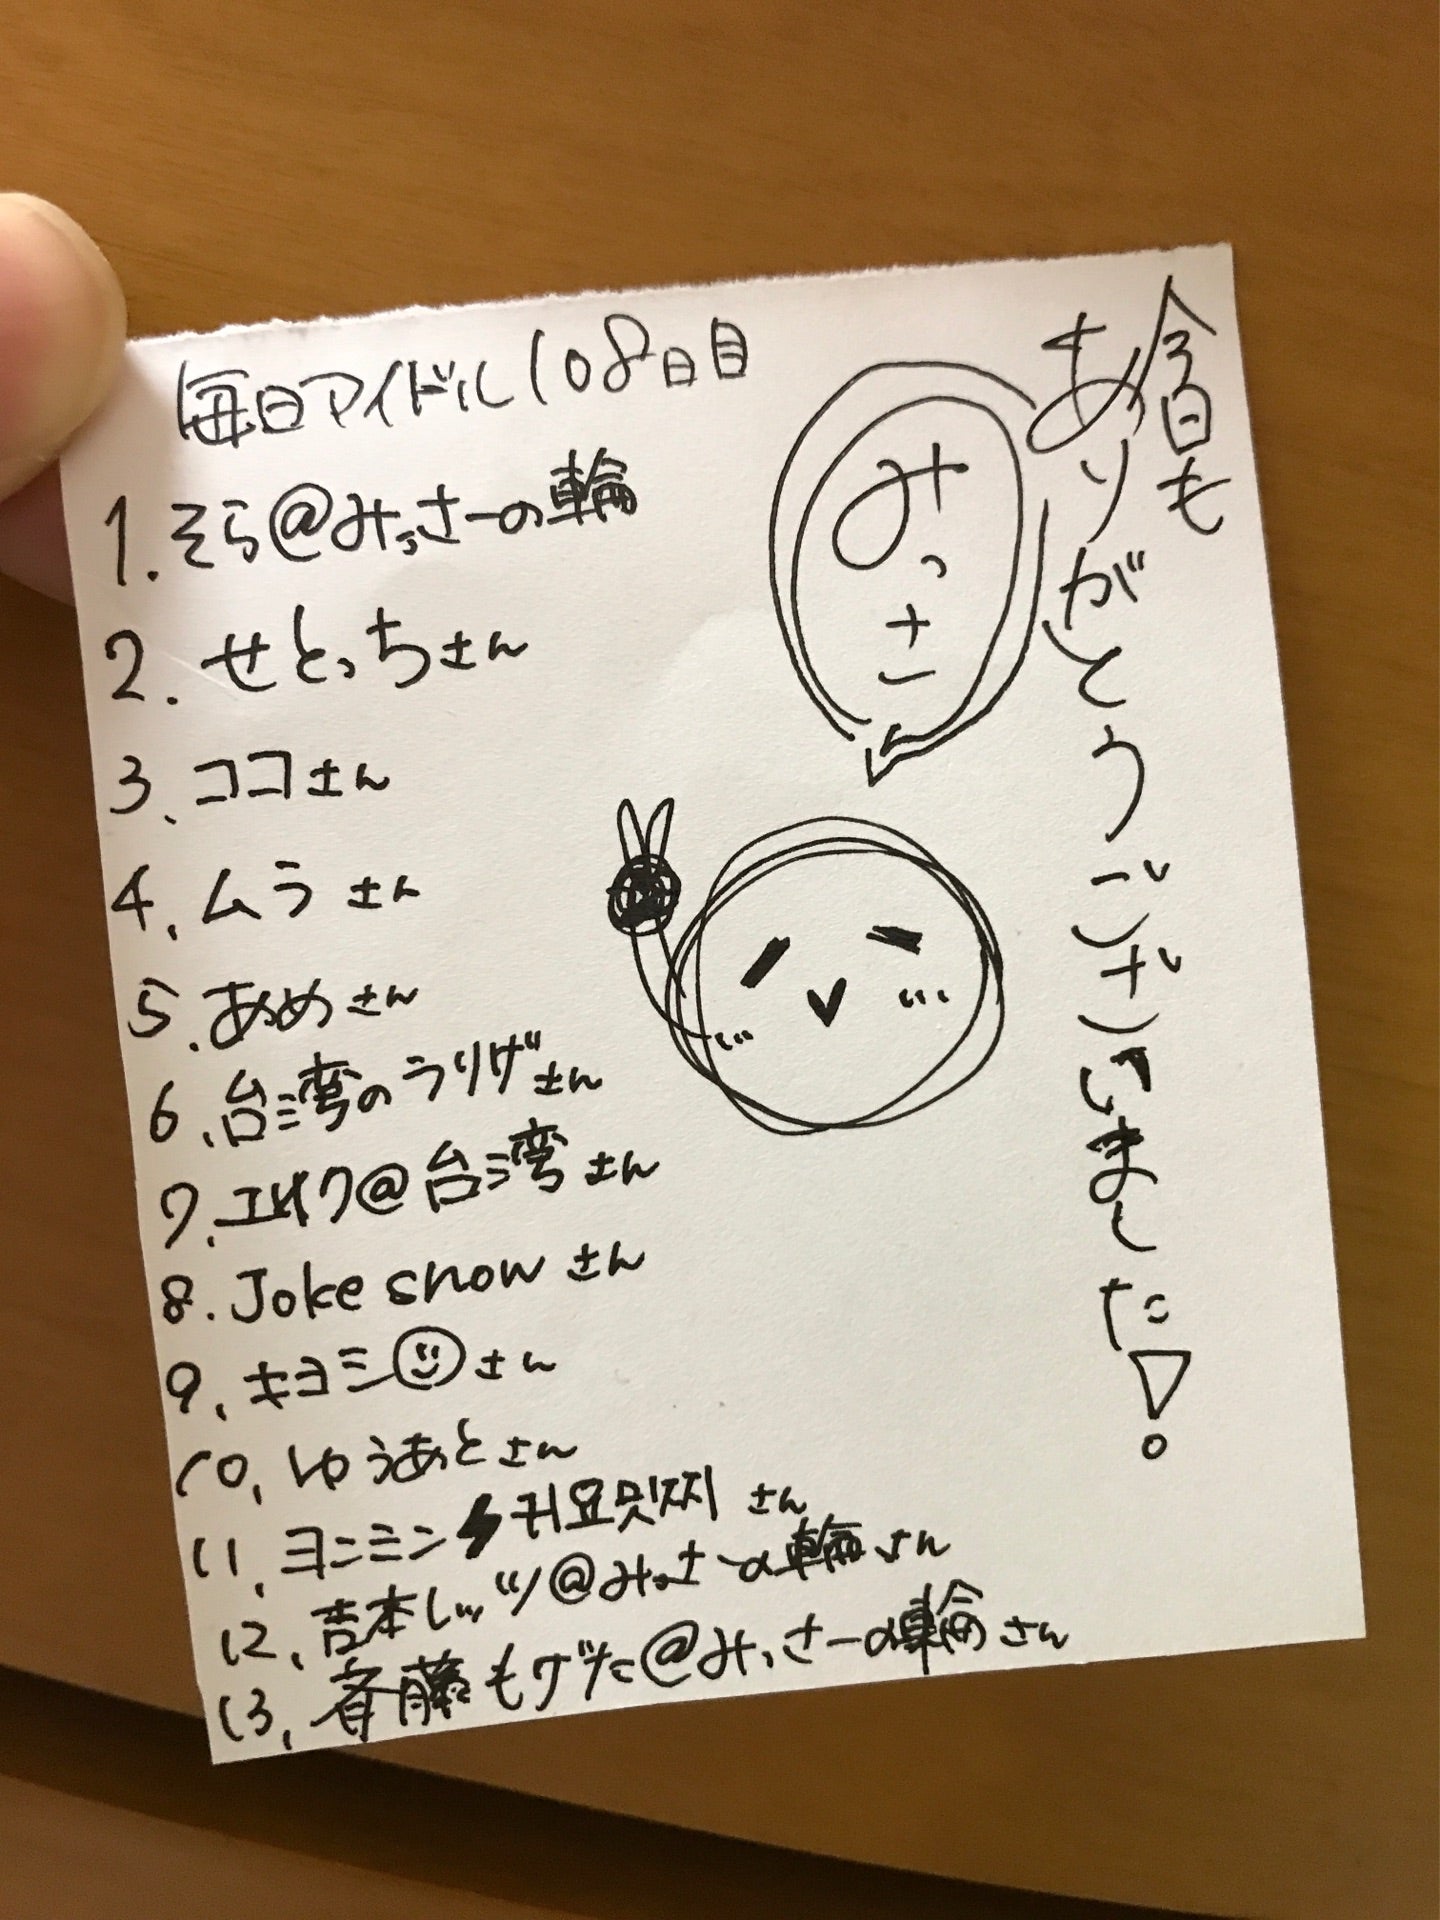 毎日アイドル108日目
1. そら@みっさーの輪
2. せとっちさん
3、ココさん
4、ムラさん
5、あめさん
6、台湾のうりげさん
7. @台湾さん
8. Joke snowさん
9、キヨミ☺さん
10、ゆうあとさん
11、ヨンミン⚡귀요밋찌さん
12、吉本しッツ@みっさーの輪さん
13、斉藤もげた@みっさーの輪さん
みっさー
今日も
ありがとうございました!